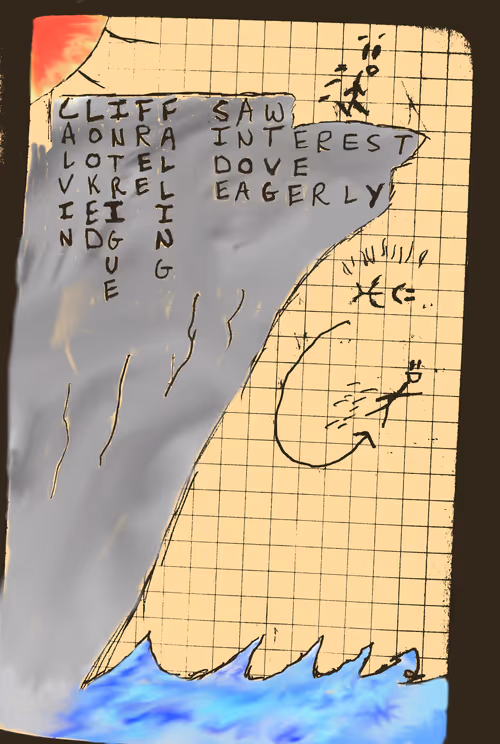 CALVIN
LOOKED
INTRIGUE
FREE
FALLING
SAW
INTEREST
DOVE
EAGERLY